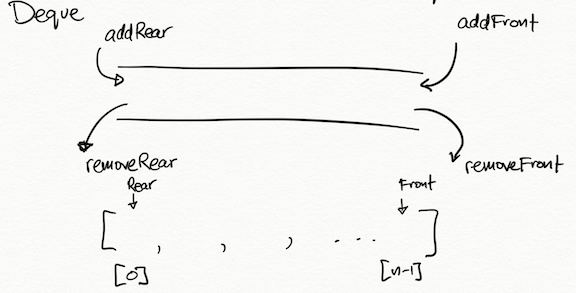 Deque
addRear
addFront
removeRear
removeFront
Rear
Front
[ , , , ... ]
[0]
[n-1]